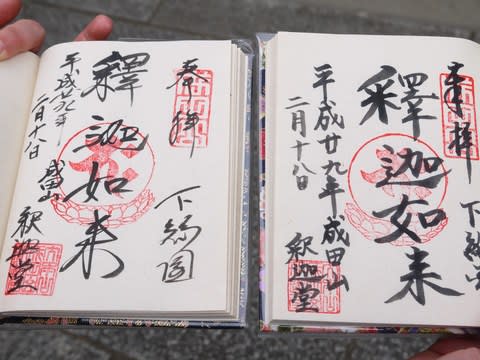 奉拝
下総國
釋迦如来
平成廿九年
二月十八日
成田山
釈迦堂
奉拝
下総
釋迦如来
平成廿九年 成田山
二月十八日
釈迦堂